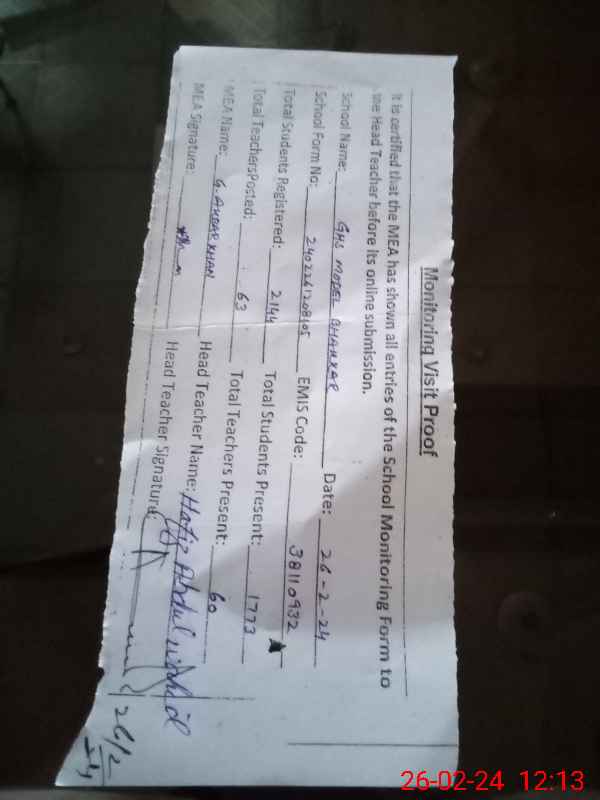 Monitoring Visit Proof
It is certified that the MEA has shown all entries of the School Monitoring Form to
the Head Teacher before its online submission.
School Name: GHS MODEL BHAKKAR Date: 26-2-24
School Form No: 2402261208405 EMIS Code: 38110932
Total Students Registered: 2144 Total Students Present: 1773
Total TeachersPosted: 63 Total Teachers Present: 60
MEA Name: G. AKBAR KHAN Head Teacher Name: Hafiz Abdul Wahid
MEA Signature: Head Teacher Signature:
26/2
26-02-24 12:13